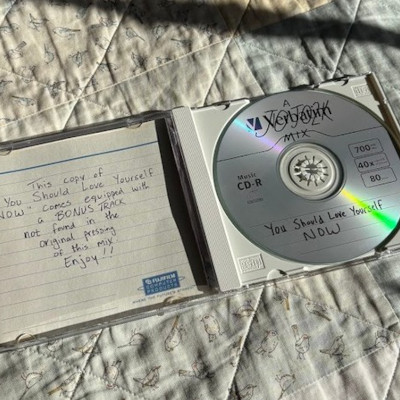 This copy of
"You Should Love Yourself
NOW" comes equipped with
a BONUS TRACK
not found in the
original pressing
of this mix.
Enjoy!!
FUJIFILM
COMPUTER
PRODUCTS
A
Verbatim
MIX
Music
CD-R
700
40x
80
You Should Love Yourself
NOW